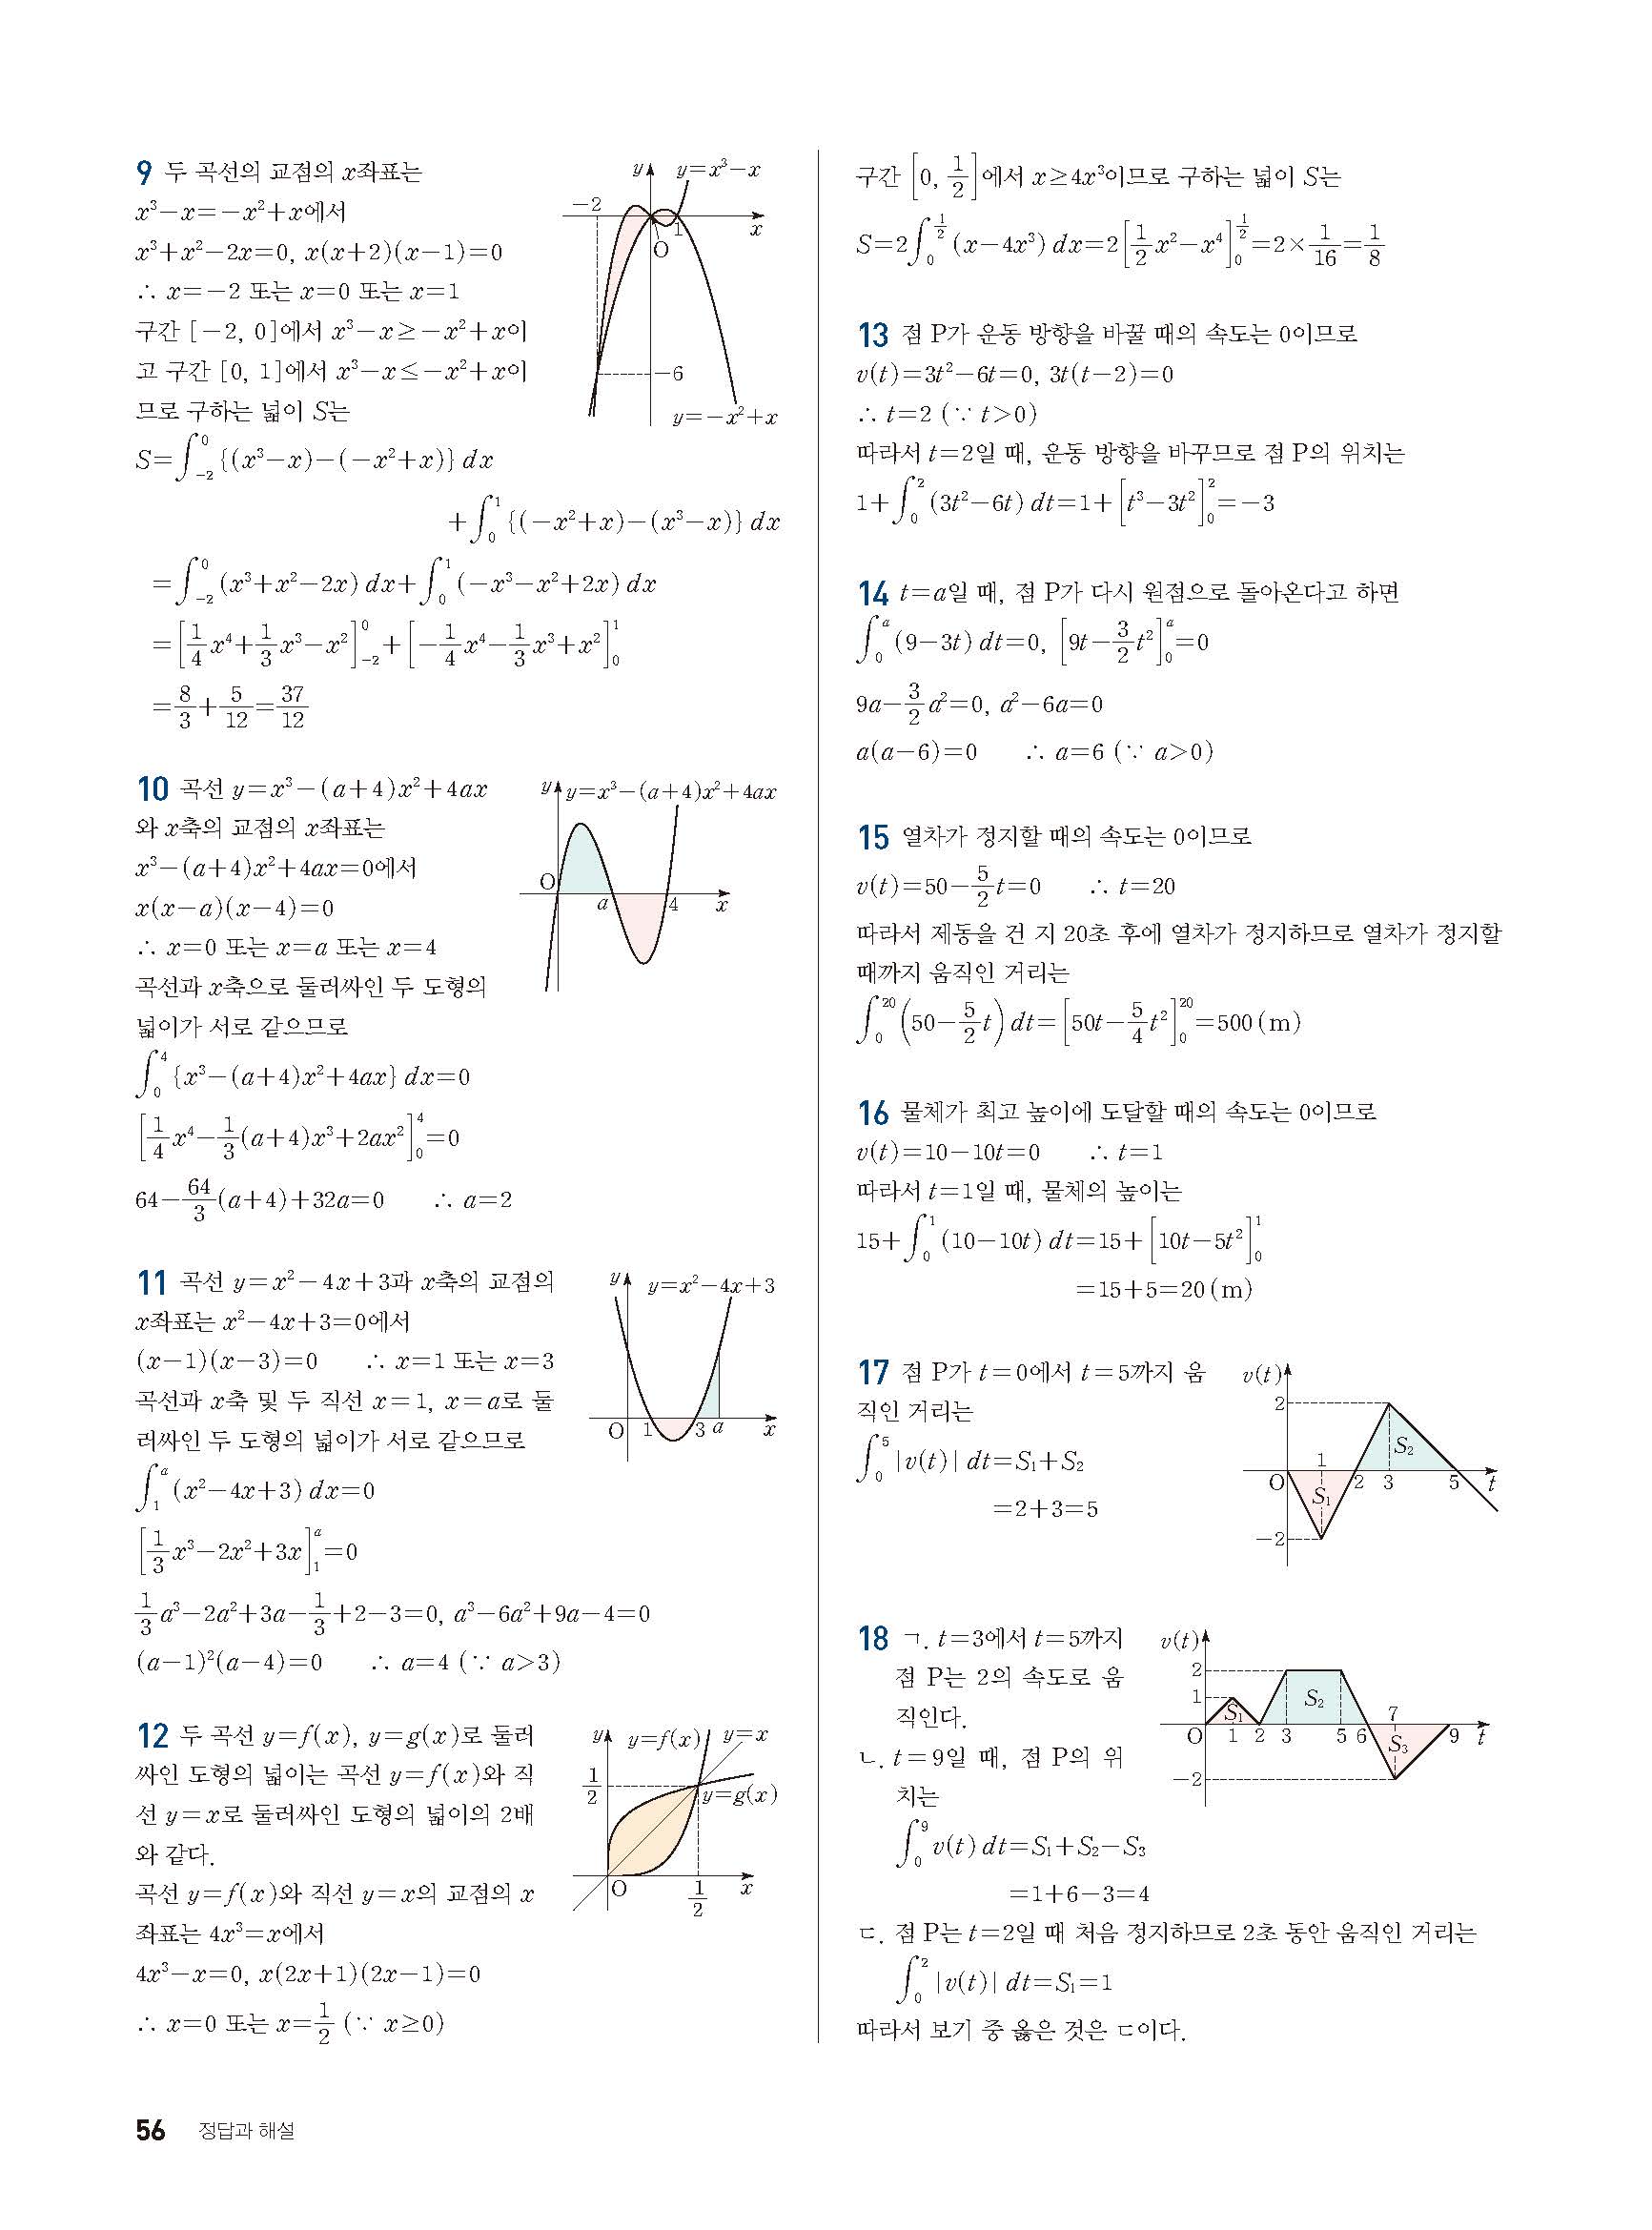 9 두 곡선의 교점의 x좌표는
x³-x=-x²+x에서
x³+x²-2x=0, x(x+2)(x-1)=0
∴ x=-2 또는 x=0 또는 x=1
구간 [-2, 0]에서 x³-x≥-x²+x이
고 구간 [0, 1]에서 x³-x≤-x²+x이
므로 구하는 넓이 S는
y y=x³-x
-2
1 x
O
-6
y=-x²+x
S=∫₋₂⁰ {(x³-x)-(-x²+x)} dx
+∫₀¹ {(-x²+x)-(x³-x)} dx
=∫₋₂⁰ (x³+x²-2x) dx+∫₀¹ (-x³-x²+2x) dx
=[1/4 x⁴+1/3 x³-x²]₋₂⁰+[-1/4 x⁴-1/3 x³+x²]₀¹
=8/3+5/12=37/12
10 곡선 y=x³-(a+4)x²+4ax
와 x축의 교점의 x좌표는
x³-(a+4)x²+4ax=0에서
x(x-a)(x-4)=0
∴ x=0 또는 x=a 또는 x=4
곡선과 x축으로 둘러싸인 두 도형의
넓이가 서로 같으므로
y y=x³-(a+4)x²+4ax
O a 4 x
∫₀⁴ {x³-(a+4)x²+4ax} dx=0
[1/4 x⁴-1/3 (a+4)x³+2ax²]₀⁴=0
64-64/3 (a+4)+32a=0 ∴ a=2
11 곡선 y=x²-4x+3과 x축의 교점의
x좌표는 x²-4x+3=0에서
(x-1)(x-3)=0 ∴ x=1 또는 x=3
곡선과 x축 및 두 직선 x=1, x=a로 둘
러싸인 두 도형의 넓이가 서로 같으므로
y y=x²-4x+3
O 1 3 a x
∫₁ᵃ (x²-4x+3) dx=0
[1/3 x³-2x²+3x]₁ᵃ=0
1/3 a³-2a²+3a-1/3+2-3=0, a³-6a²+9a-4=0
(a-1)²(a-4)=0 ∴ a=4 (∵ a>3)
12 두 곡선 y=f(x), y=g(x)로 둘러
싸인 도형의 넓이는 곡선 y=f(x)와 직
선 y=x로 둘러싸인 도형의 넓이의 2배
와 같다.
곡선 y=f(x)와 직선 y=x의 교점의 x
좌표는 4x³=x에서
4x³-x=0, x(2x+1)(2x-1)=0
∴ x=0 또는 x=1/2 (∵ x≥0)
y y=f(x) y=x
1/2
y=g(x)
O 1/2 x
구간 [0, 1/2]에서 x≥4x³이므로 구하는 넓이 S는
S=2∫₀^(1/2) (x-4x³) dx=2[1/2 x²-x⁴]₀^(1/2)=2×1/16=1/8
13 점 P가 운동 방향을 바꿀 때의 속도는 0이므로
v(t)=3t²-6t=0, 3t(t-2)=0
∴ t=2 (∵ t>0)
따라서 t=2일 때, 운동 방향을 바꾸므로 점 P의 위치는
1+∫₀² (3t²-6t) dt=1+[t³-3t²]₀²=-3
14 t=a일 때, 점 P가 다시 원점으로 돌아온다고 하면
∫₀ᵃ (9-3t) dt=0, [9t-3/2 t²]₀ᵃ=0
9a-3/2 a²=0, a²-6a=0
a(a-6)=0 ∴ a=6 (∵ a>0)
15 열차가 정지할 때의 속도는 0이므로
v(t)=50-5/2 t=0 ∴ t=20
따라서 제동을 건 지 20초 후에 열차가 정지하므로 열차가 정지할
때까지 움직인 거리는
∫₀²⁰ (50-5/2 t) dt=[50t-5/4 t²]₀²⁰=500(m)
16 물체가 최고 높이에 도달할 때의 속도는 0이므로
v(t)=10-10t=0 ∴ t=1
따라서 t=1일 때, 물체의 높이는
15+∫₀¹ (10-10t) dt=15+[10t-5t²]₀¹
=15+5=20(m)
17 점 P가 t=0에서 t=5까지 움
직인 거리는
∫₀⁵ |v(t)| dt=S₁+S₂
=2+3=5
v(t)
2
S₂
1
O 2 3 5 t
S₁
-2
18 ㄱ. t=3에서 t=5까지
점 P는 2의 속도로 움
직인다.
ㄴ. t=9일 때, 점 P의 위
치는
v(t)
2
1 S₁ S₂ 7
O 1 2 3 5 6 9 t
S₃
-2
∫₀⁹ v(t) dt=S₁+S₂-S₃
=1+6-3=4
ㄷ. 점 P는 t=2일 때 처음 정지하므로 2초 동안 움직인 거리는
∫₀² |v(t)| dt=S₁=1
따라서 보기 중 옳은 것은 ㄷ이다.
56 정답과 해설